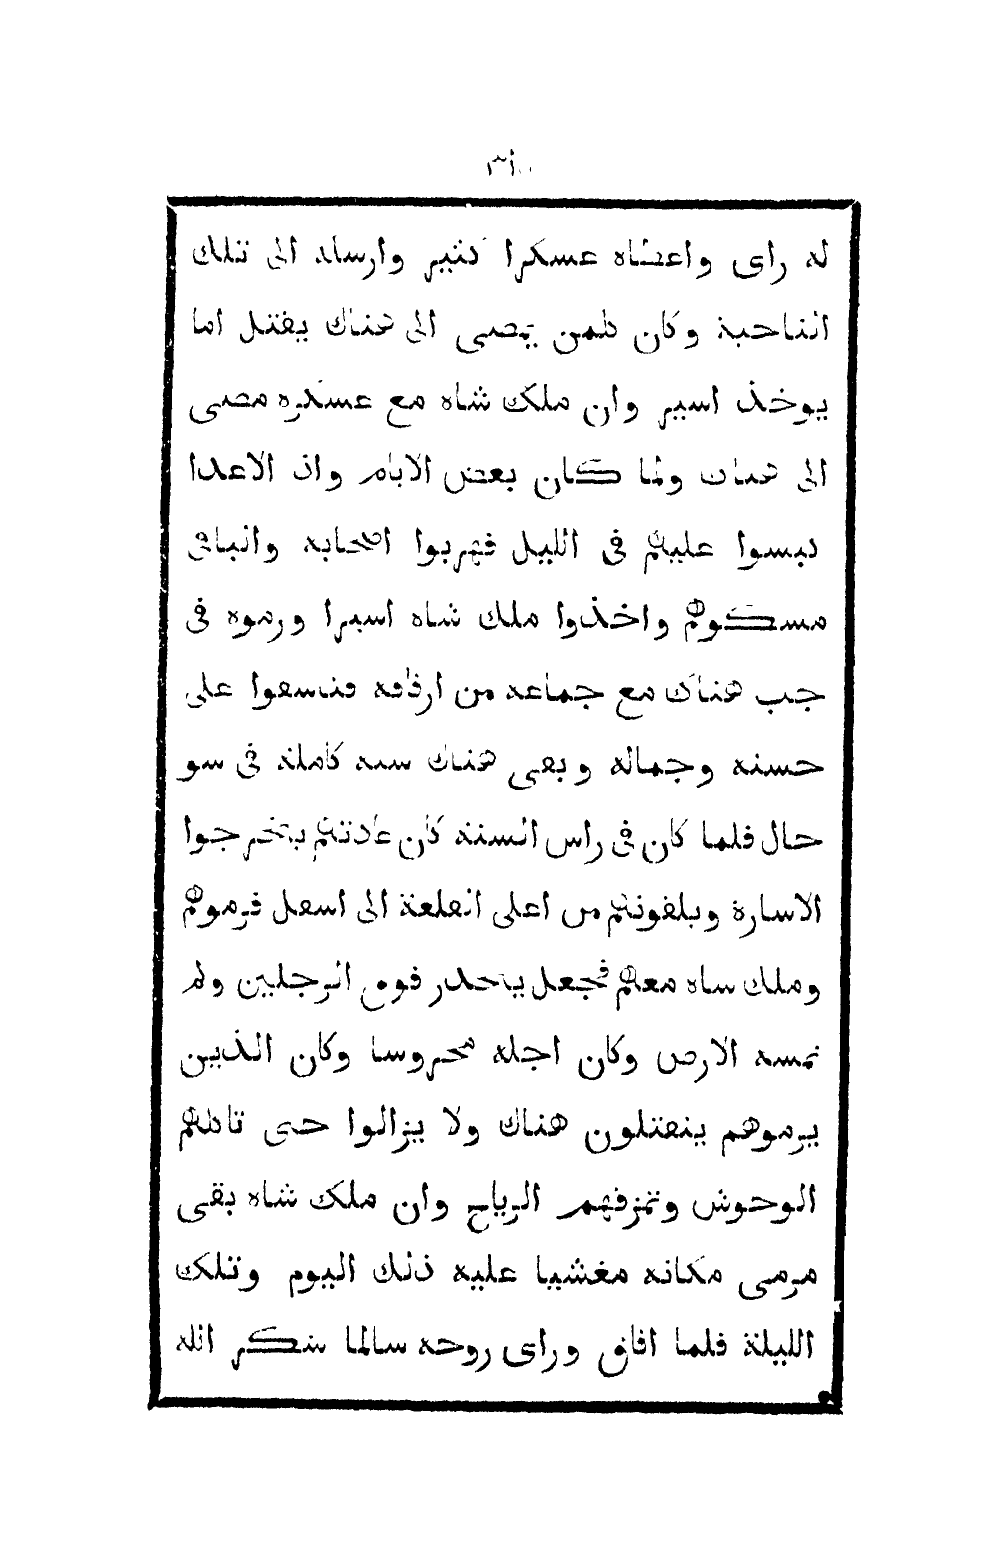 له راى واعطاه عسكرا كثير وارسله الى تلك
الناحية وكان كلمن يمضى الى هناك يقتل اما
يوخذ اسير وان ملك شاه مع عسكره مضى
الى هناك ولما كان بعض الايام واذ الاعدا
كبسوا عليهم فى الليل فهربوا اصحابه والباقى
مسكوهم واخذوا ملك شاه اسيرا ورموه فى
جب هناك مع جماعه من ارفاقه فتاسفوا على
حسنه وجماله وبقى هناك سنه كاملة فى سو
حال فلما كان فى راس السنة كان عادتهم يخرجوا
الاسارة ويلقونهم من اعلى القلعة الى اسفل فرموهم
وملك شاه معهم فجعل ينحدر فوق الرجلين ولم
تمسه الارض وكان اجله محروسا وكان الذين
يرموهم ينقتلون هناك ولا يزالوا حتى تاكلهم
الوحوش وتمزقهم الرياح وان ملك شاه بقى
مرمى مكانه مغشيا عليه ذلك اليوم وتلك
الليلة فلما افاق وراى روحه سالما شكر الله